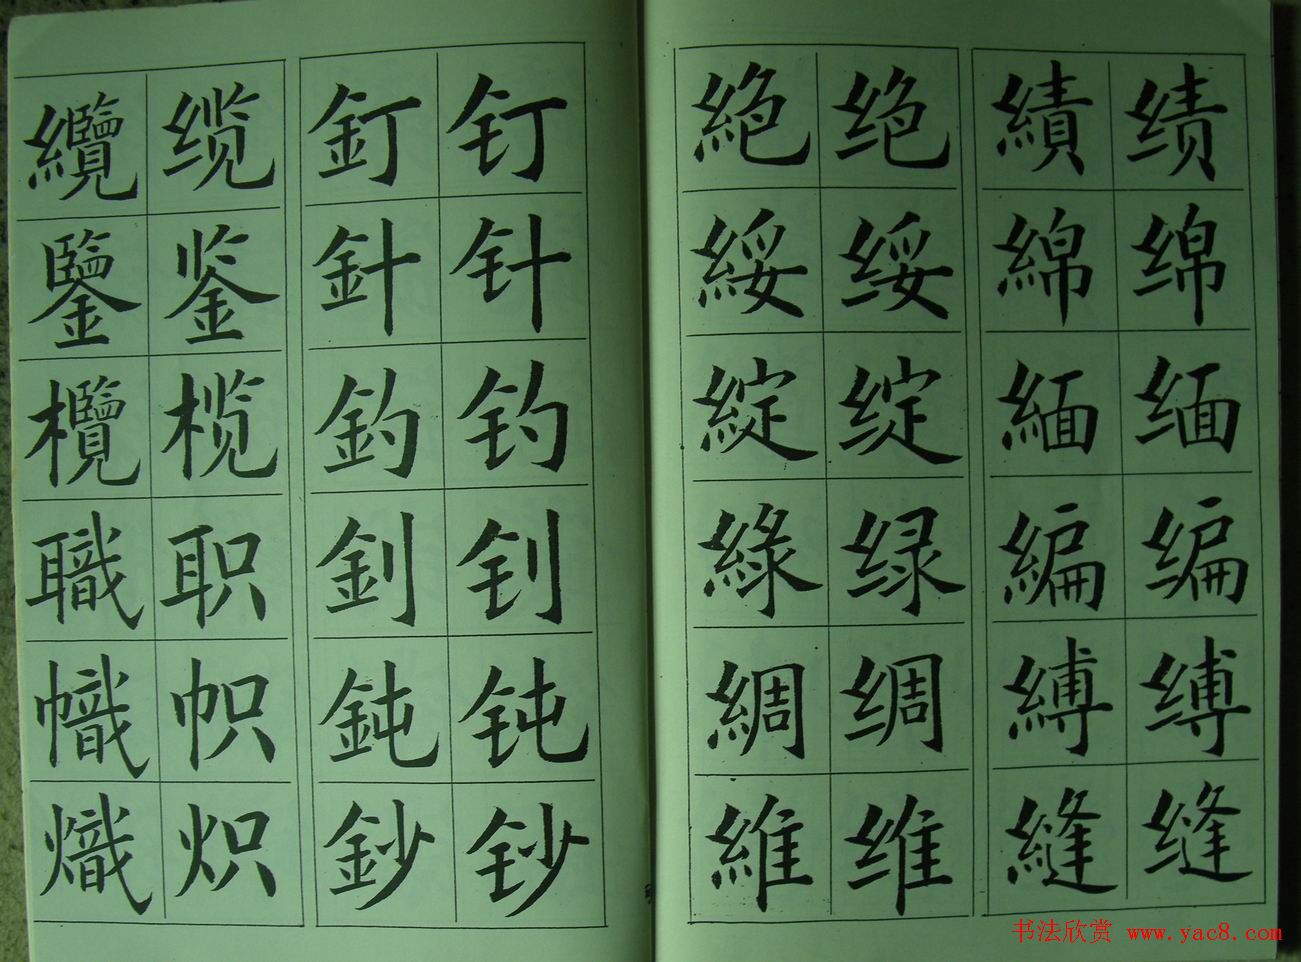 纜 缆 釘 钉 絕 绝 績 绩
鑒 鉴 針 针 綏 绥 綿 绵
欖 榄 釣 钓 綻 绽 緬 缅
職 职 釗 钊 綠 绿 編 编
幟 帜 鈍 钝 綢 绸 縛 缚
熾 炽 鈔 钞 維 维 縫 缝
书法欣赏 www.yac8.com